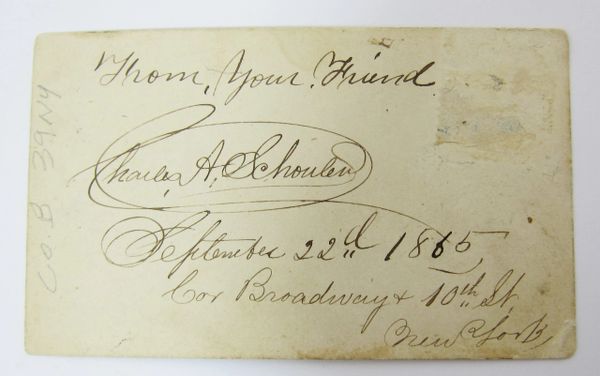 From, Your, Friend
Charles A. Schouten
September 22d 1865
Cor Broadway & 10th St,
New York
Co. B 39 NY